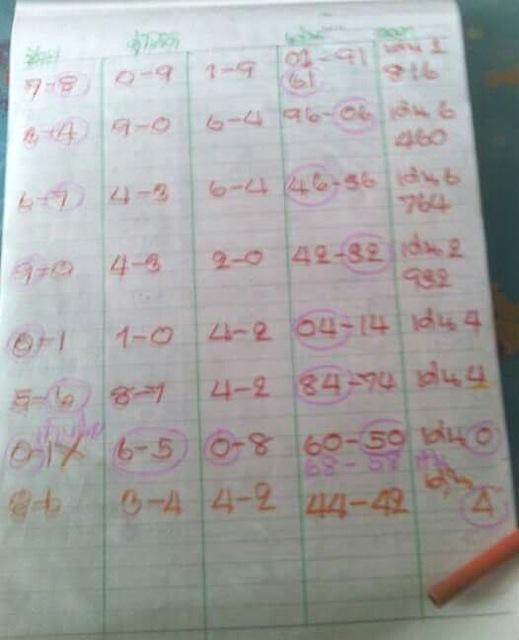 7-8 0-9 1-9 01-91 เด่น 1
61 816
8-4 9-0 6-4 96-06 เด่น 6
460
6-7 4-3 6-4 46-36 เด่น 6
764
9-0 4-3 2-0 42-32 เด่น 2
932
0-1 1-0 4-2 04-14 เด่น 4
5-6 8-7 4-2 84-74 เด่น 4
0-1X 6-5 0-8 60-50 เด่น 0
68-58
8-6 3-4 4-2 44-42 เด่น
4